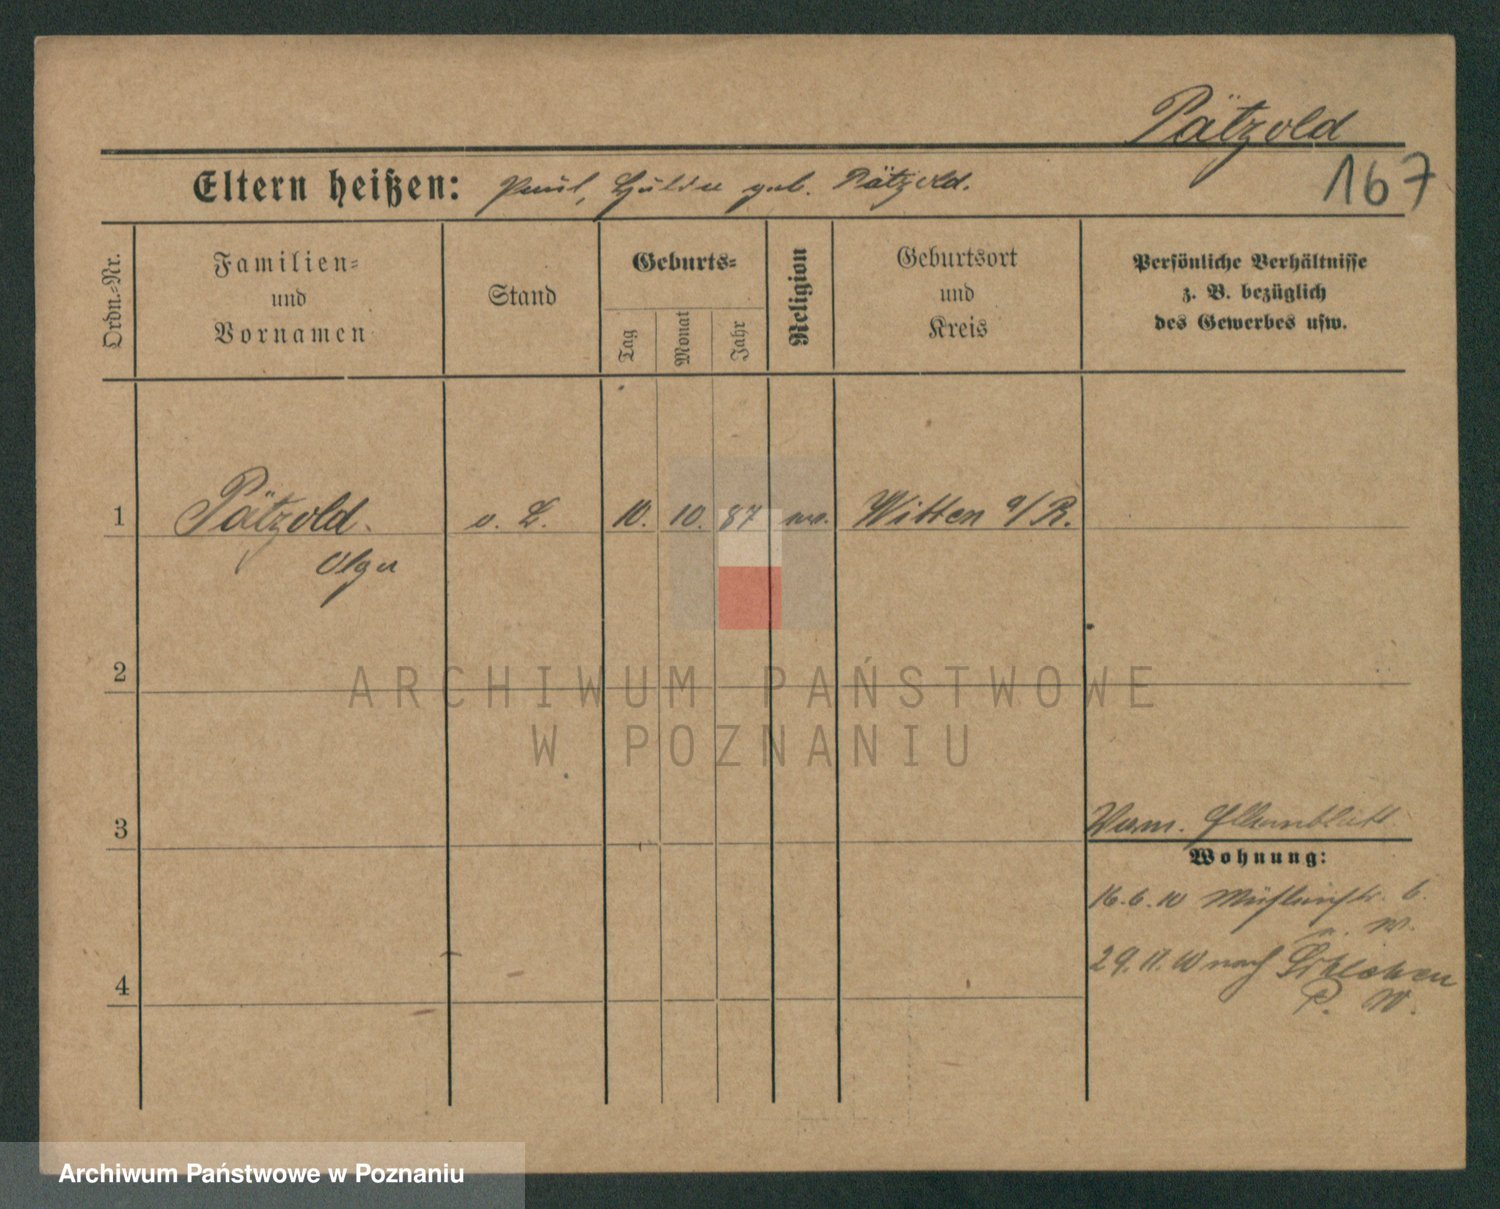 Pätzold
167
Eltern heißen: Paul, Hulda geb. Pätzold.
Ordn.=Nr.
Familien=
und
Vornamen
Stand
Geburts=
Tag
Monat
Jahr
Religion
Geburtsort
und
Kreis
Persönliche Verhältnisse
z. B. bezüglich
des Gewerbes usw.
1 Pätzold. o. 10. 10. 87 Witten a/R.
Olga
2
ARCHIWUM PAŃSTWOWE
W POZNANIU
3
Wohnung:
16.6.10 6.
W.
29.11.10 nach
P. W.
4
Archiwum Państwowe w Poznaniu